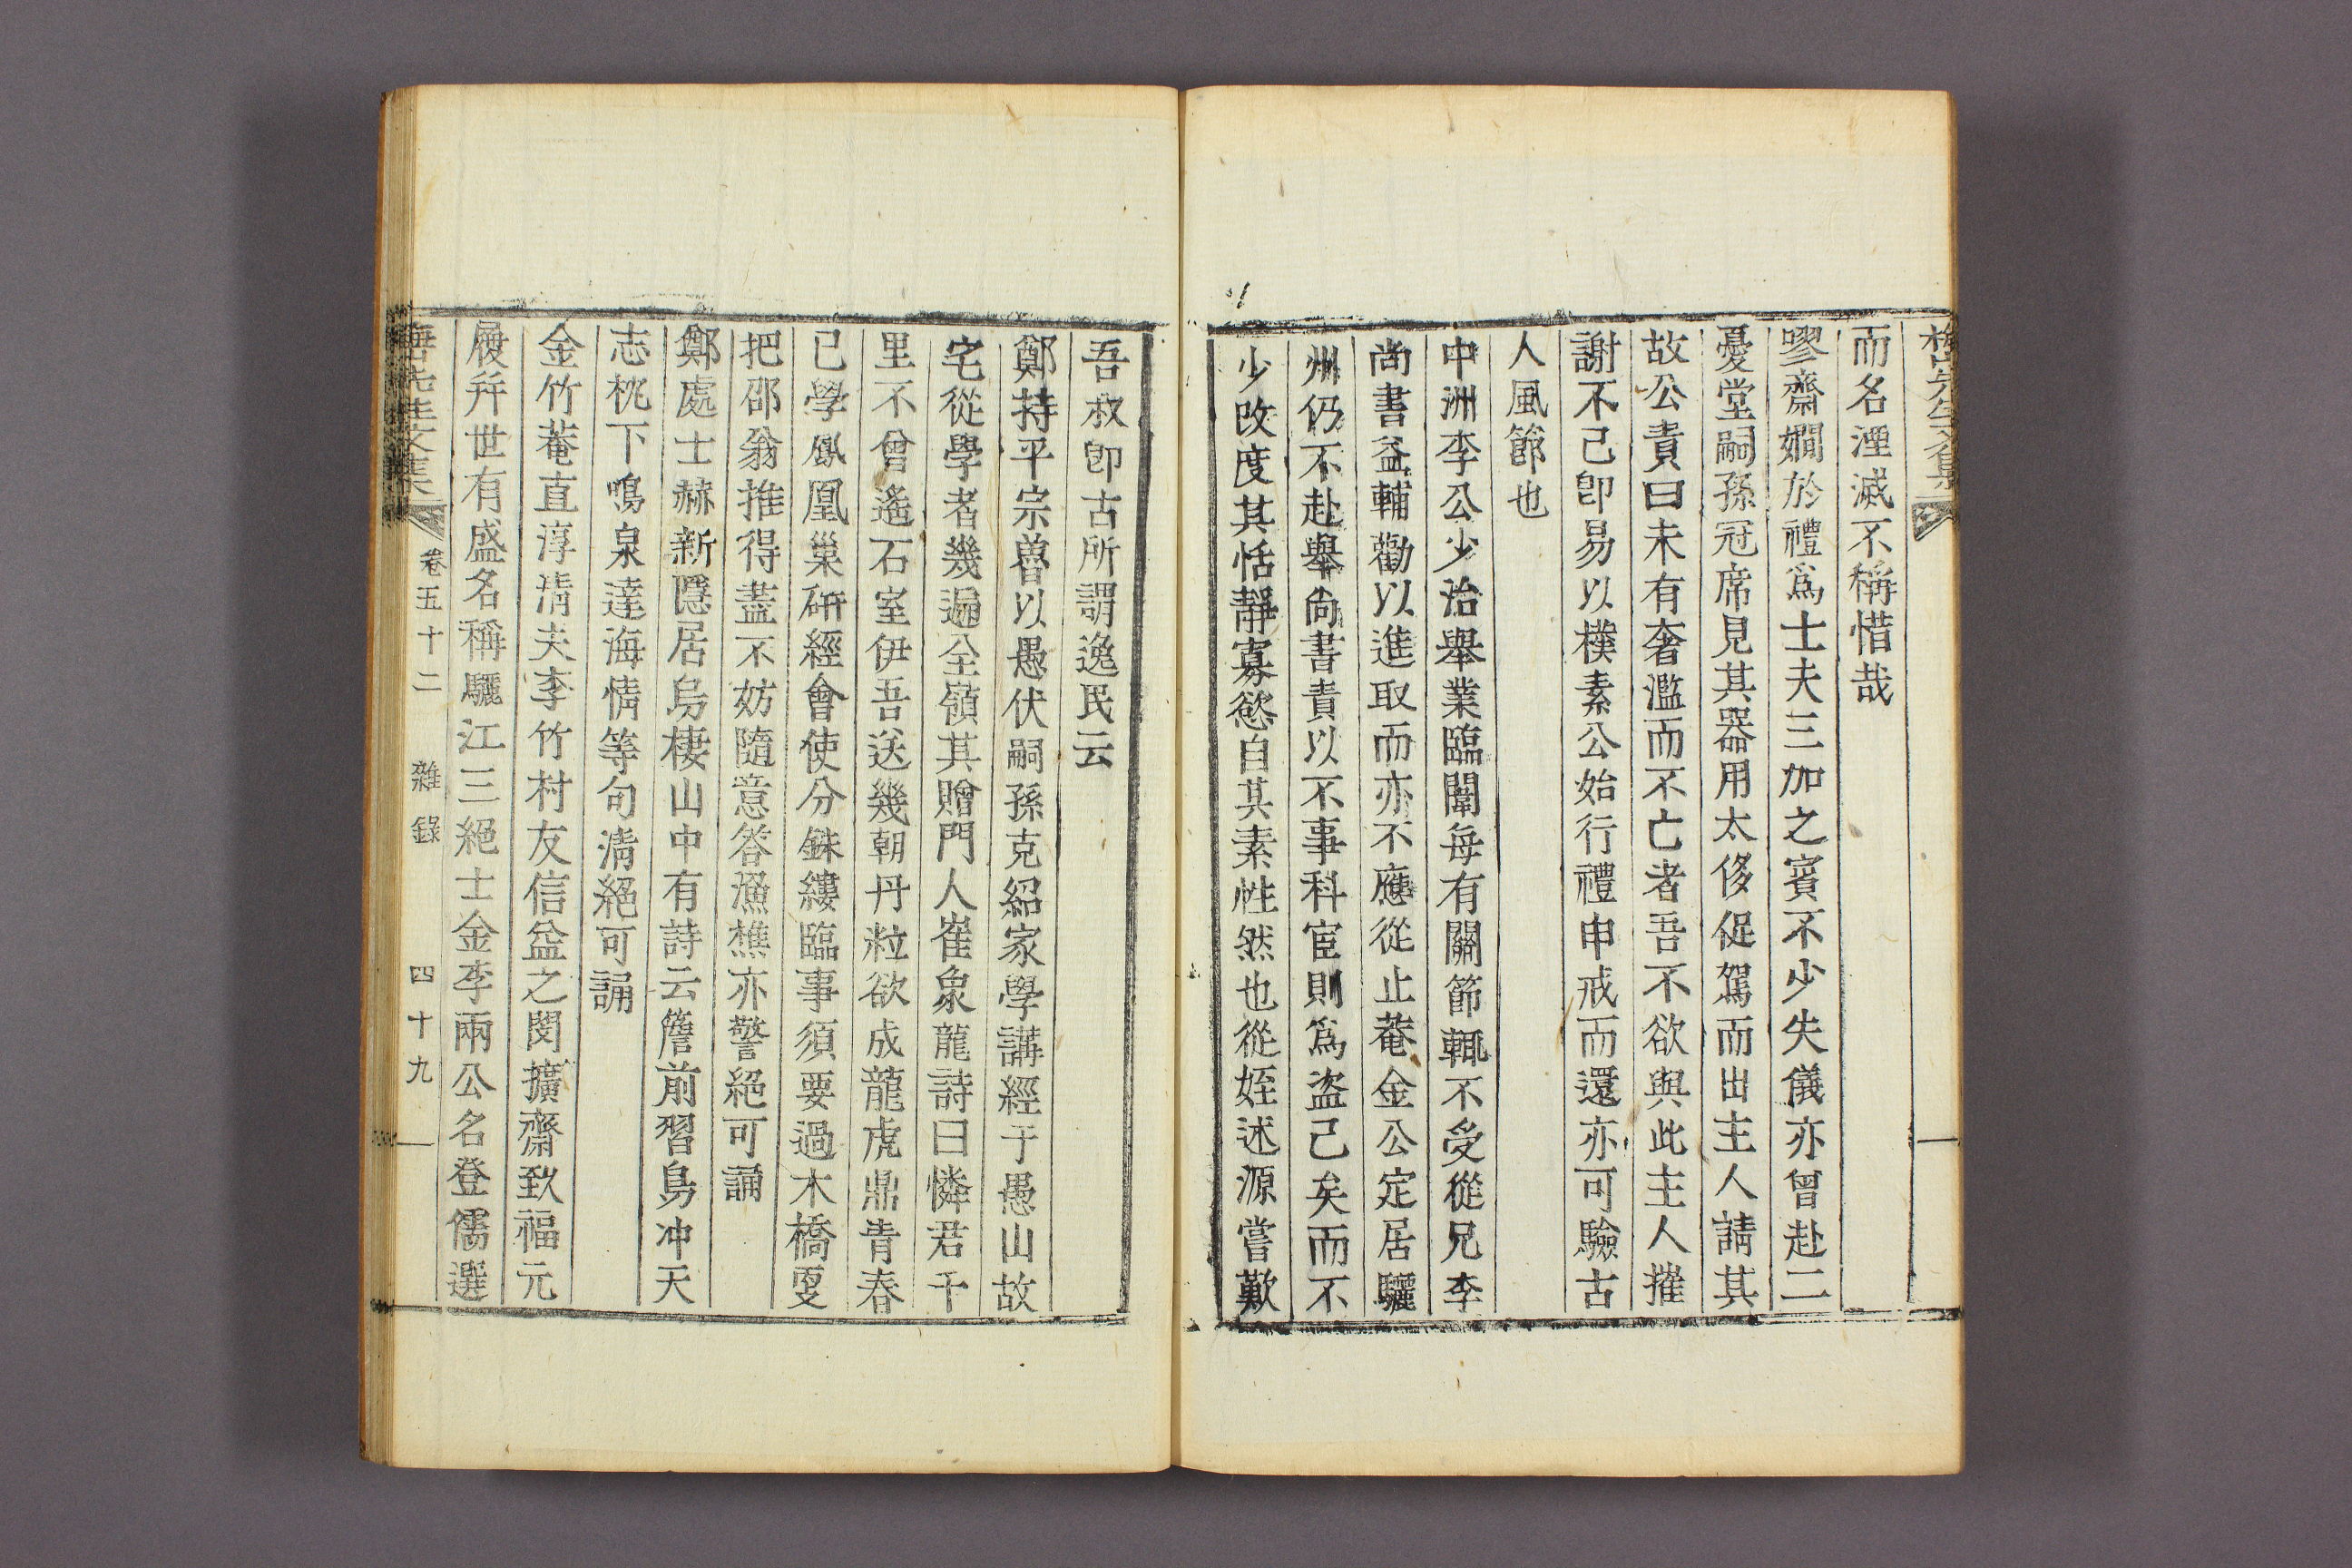 梅山先生文集
而名湮滅不稱惜哉
嘐齋嫺於禮爲士夫三加之賓不少失儀亦曾赴二
憂堂嗣孫冠席見其器用太侈促駕而出主人請其
故公責曰未有奢濫而不亡者吾不欲與此主人摧
謝不已卽易以樸素公始行禮申戒而還亦可驗古
人風節也
中洲李公少治舉業臨闈每有關節輒不受從兄李
尚書益輔勸以進取而亦不應從止菴金公定居驪
州仍不赴舉尙書責以不事科宦則爲盜己矣而不
少改度其恬靜寡慾自其素性然也從姪述源嘗歎
吾叔卽古所謂逸民云
鄭持平宗魯以愚伏嗣孫克紹家學講經于愚山故
宅從學者幾遍全嶺其贈門人崔象龍詩曰憐君千
里不曾遙石室伊吾送幾朝丹粒欲成龍虎鼎靑春
已學鳳凰巢硏經會使分銖縷臨事須要過木橋更
把邵翁推得盡不妨隨意答漁樵亦警絕可誦
鄭處士赫新隱居烏棲山中有詩云簷前習鳥冲天
志枕下鳴泉達海情等句淸絕可誦
金竹菴直淳淸夫李竹村友信益之閔擴齋致福元
履幷世有盛名稱驪江三絕士金李兩公名登儒選
梅山先生文集 卷五十二 雜錄 四十九